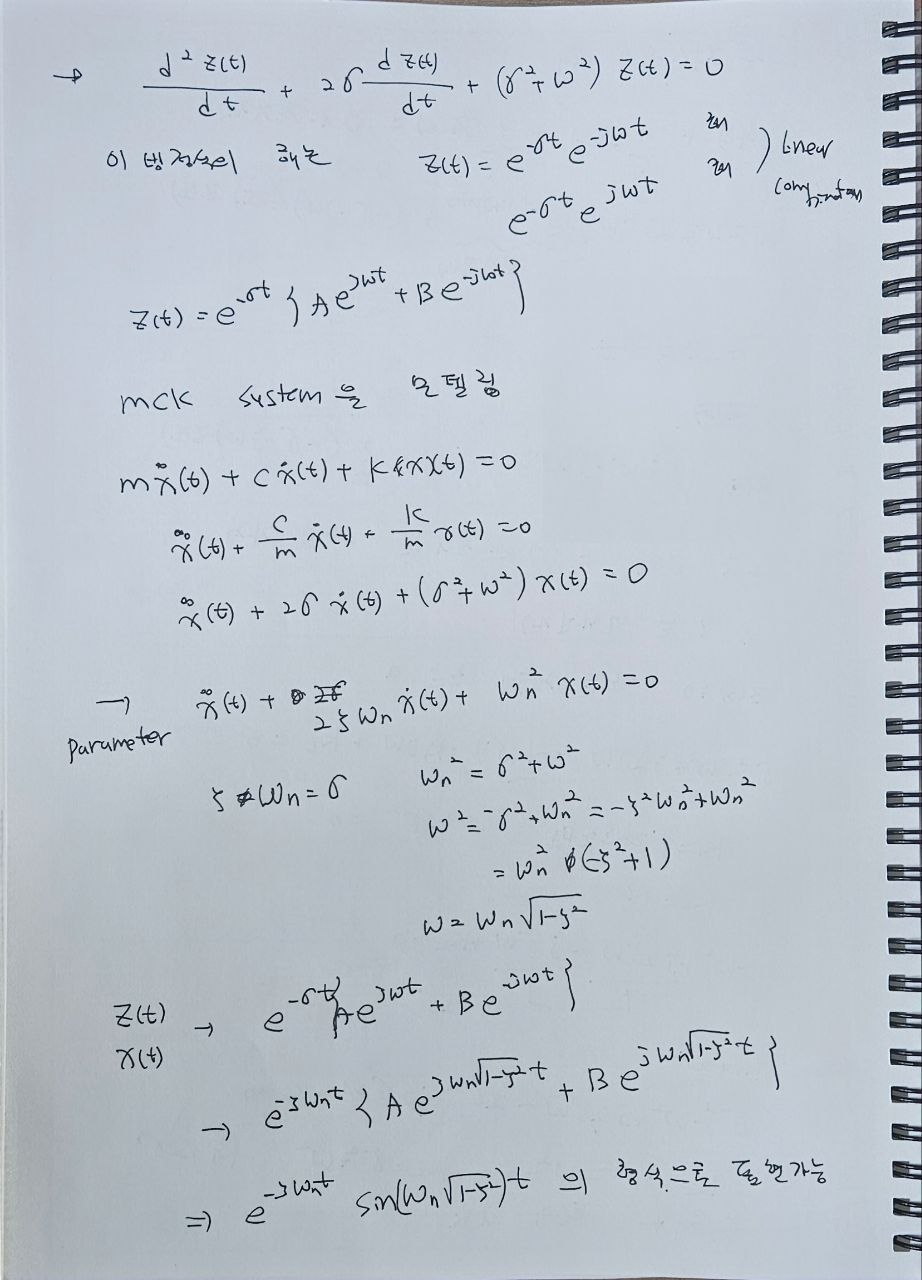 → d² z(t) / dt + 2σ d z(t) / dt + (σ² + ω²) z(t) = 0
이 방정식의 해는 z(t) = e^{-σt} e^{-jωt} 해
e^{-σt} e^{jωt} 해 ) linear combination
z(t) = e^{-σt} { A e^{jωt} + B e^{-jωt} }
mck system을 모델링
mẍ(t) + cẋ(t) + kx(t) = 0
ẍ(t) + c/m ẋ(t) + k/m x(t) = 0
ẍ(t) + 2σ ẋ(t) + (σ² + ω²) x(t) = 0
→ ẍ(t) + 2ζωn ẋ(t) + ωn² x(t) = 0
parameter
ζωn = σ ωn² = σ² + ω²
ω² = -σ² + ωn² = -ζ²ωn² + ωn²
= ωn² (-ζ² + 1)
ω = ωn √(1-ζ²)
z(t) → e^{-σt} { A e^{jωt} + B e^{-jωt} }
x(t)
→ e^{-ζωnt} { A e^{jωn√(1-ζ²) t} + B e^{jωn√(1-ζ²) t} }
⇒ e^{-ζωnt} sin(ωn√(1-ζ²))t 의 형식으로 표현가능